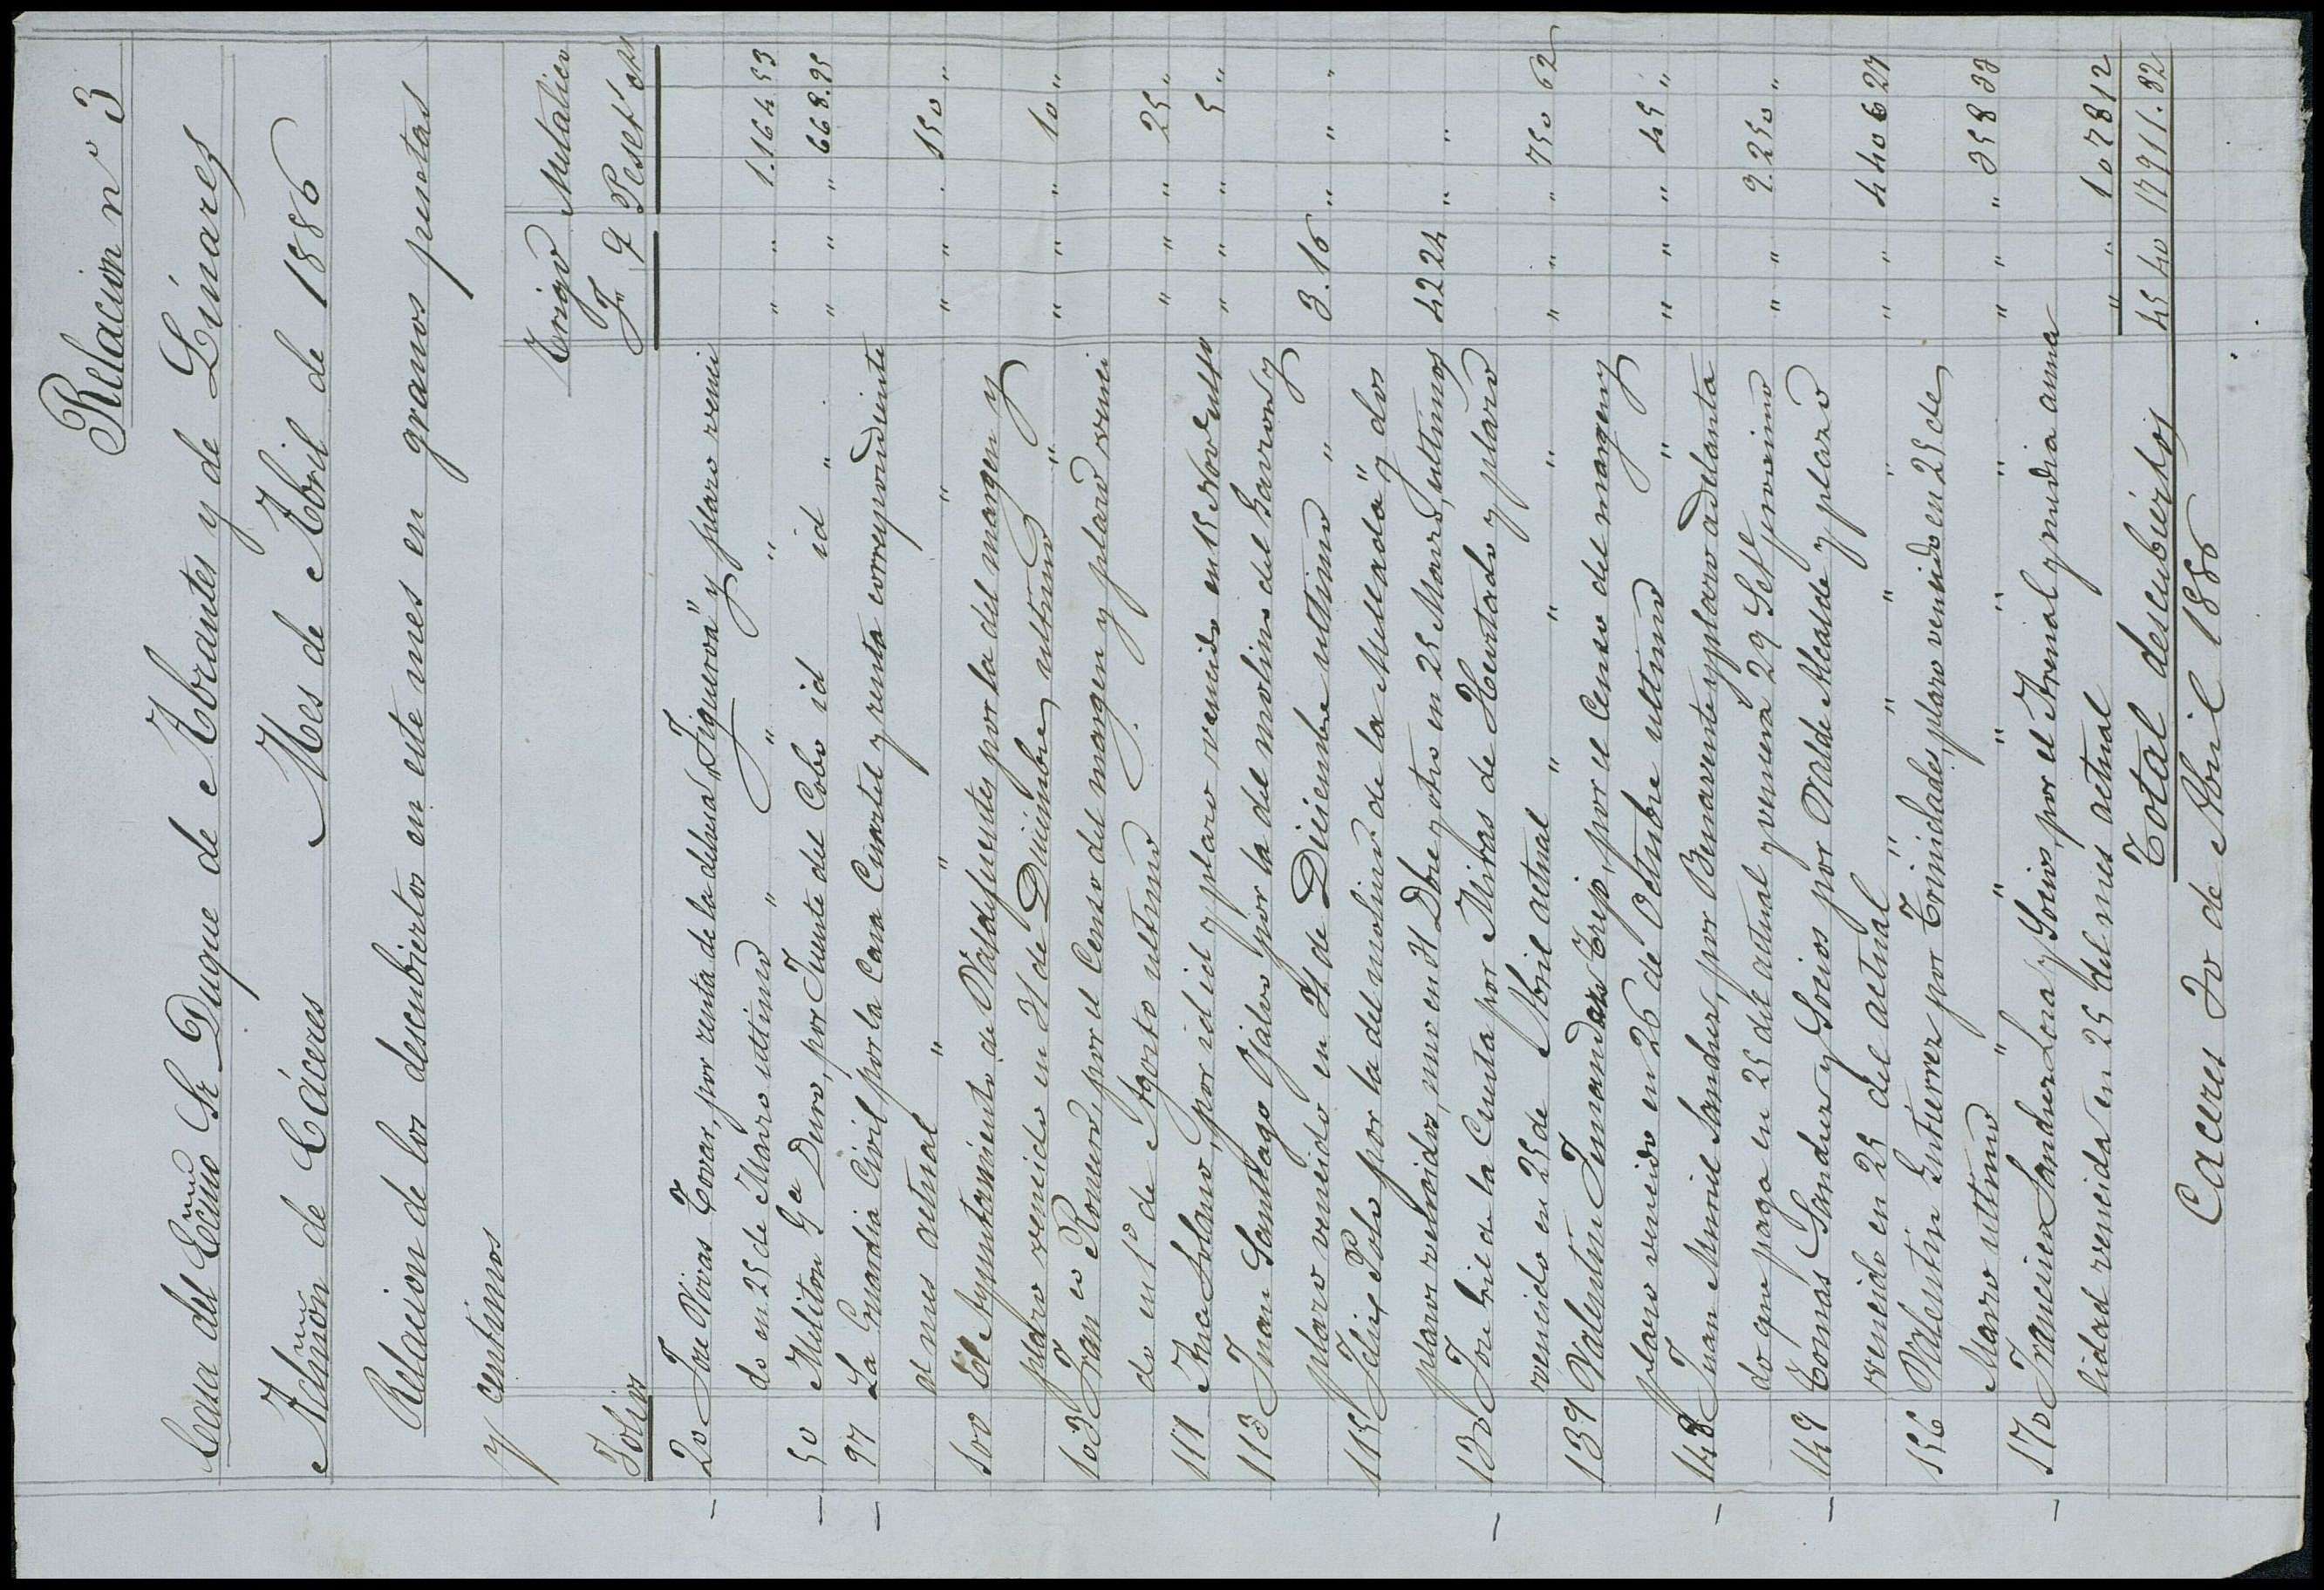 Relacion nº 3
Casa del Exmo Sr Duque de Abrantes y de Linares
Admon de Cáceres Mes de Abril de 1886
Relacion de los descubiertos en este mes en granos pesetas
y centimos
Trigo Metalico
Folios F. q Peset cts
20 Jose Vivas Tovar, por renta de la dehesa "Figueroa" y plazo venci
do en 25 de Marzo ultimo " " " " " 1.164 53
50 Meliton Ga Duro, por Fuente del Cobo id id " " " " 668.25
97 La Guardia Civil por la Casa Cuartel y renta correspondiente
al mes actual " " " " " . 150 "
100 El Ayuntamiento de Valdefuentes por la del margen y
plazo vencido en 31 de Diciembre ultimo " " " " 10 "
103 Franco Romero, por el Censo del margen y plazo venci
do en 1º de Agosto ultimo " " " 25 "
111 Ana Solano, por id id y plazo vencido en 15 Novbre ultio " " " 5 "
113 Juan Santiago Galvo por la del molino del Garron y
plazo vencido en 31 de Diciembre ultimo " 3. 16 " " "
115 Felix Polo por la del molino de la Mellada" y dos
plazos vencidos, uno en 31 Dbre y otro en 25 Marzo, ultimos 42 24 " "
130 Jose Gil de la Cuesta por Mitras de Hurtado y plazo
vencido en 25 de Abril actual " " " " " " 750 62
139 Valentin Fernandez Trejo, por el Censo del margen y
plazo vencido en 26 de Octubre ultimo " " " " 45 "
148 Juan Muriel Sanchez, por Benavente y plazo adelanta
do que paga en 25 del actual y vencerá 29 Sete proximo " " 9.250 "
149 Tomás Sanchez y Socios por Valde Alcalde y plazo
vencido en 25 del actual " " " " " " 4406 27
156 Valentin Gutierrez por Trinidades, plazo vencido en 25 de
Marzo ultimo " " " " " " " " 358 33
170 Francisco Sanchez Lona y Socios, por el Arenal y media anua
lidad vencida en 25 del mes actual " " 1078 12
Total descubiertos 45 40 17911. 82
Caceres 30 de Abril 1886